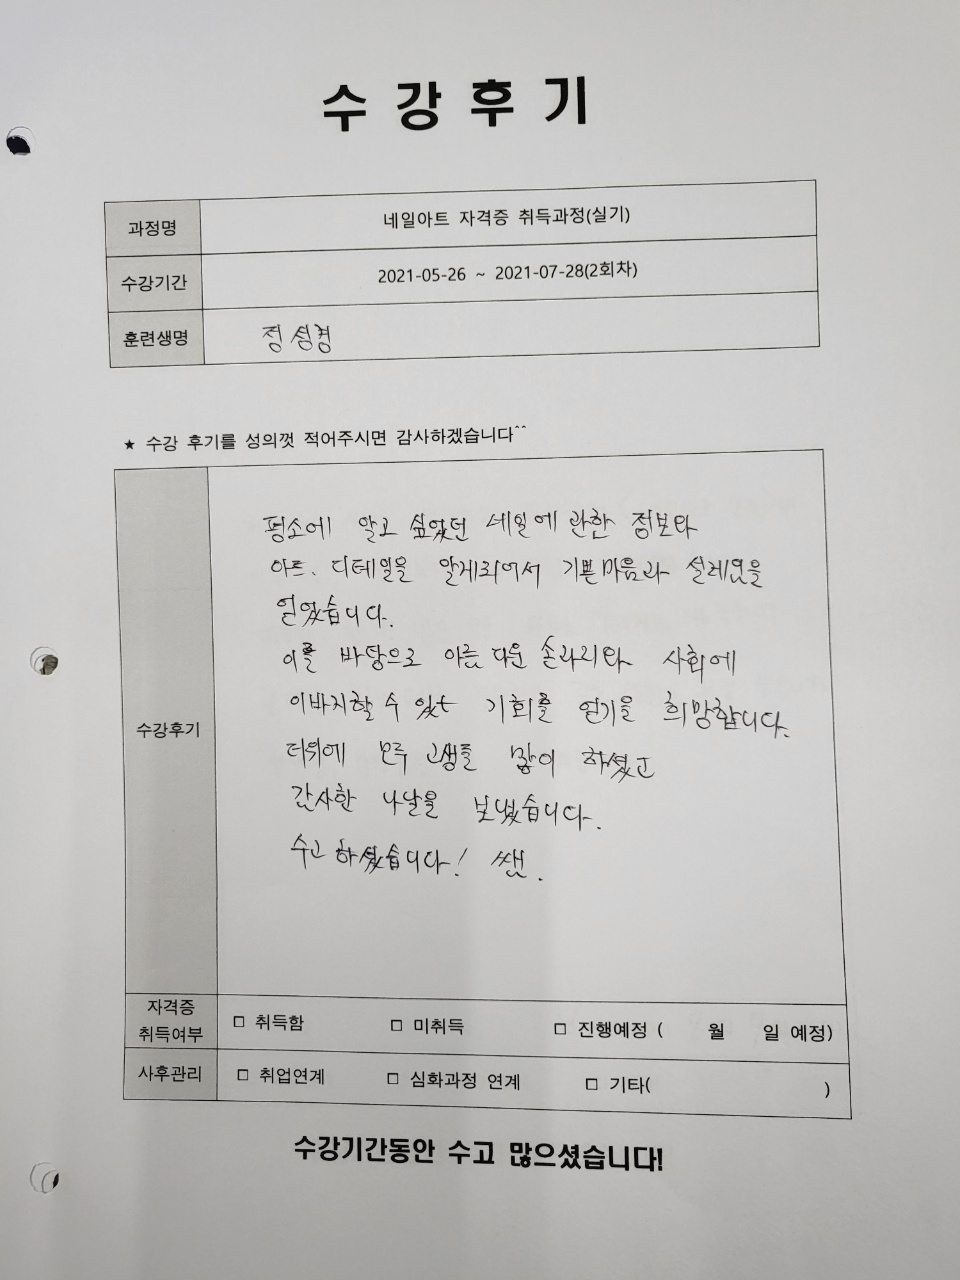 수 강 후 기
과정명 네일아트 자격증 취득과정(실기)
수강기간 2021-05-26 ~ 2021-07-28(2회차)
훈련생명 정성경
★ 수강 후기를 성의껏 적어주시면 감사하겠습니다^^
평소에 알고 싶었던 네일에 관한 정보와
아트, 디테일을 알게되어서 기쁜마음과 설레임을
얻었습니다.
이를 바탕으로 아름다운 손과리와 사회에
이바지할 수 있는 기회를 얻기를 희망합니다.
더위에 모두 고생을 많이 하셨고
감사한 나날을 보냈습니다.
수강후기
수고하셨습니다! 쌤.
자격증
취득여부 □ 취득함 □ 미취득 □ 진행예정 ( 월 일 예정)
사후관리 □ 취업연계 □ 심화과정 연계 □ 기타( )
수강기간동안 수고 많으셨습니다!